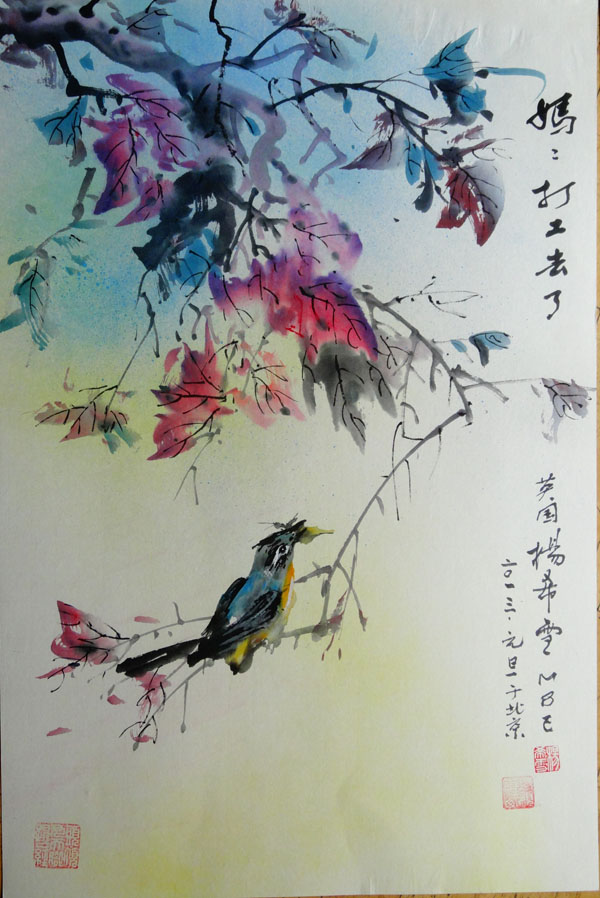 媽〻打工去了
英国楊希雪MBE
二〇一三·元旦于北京